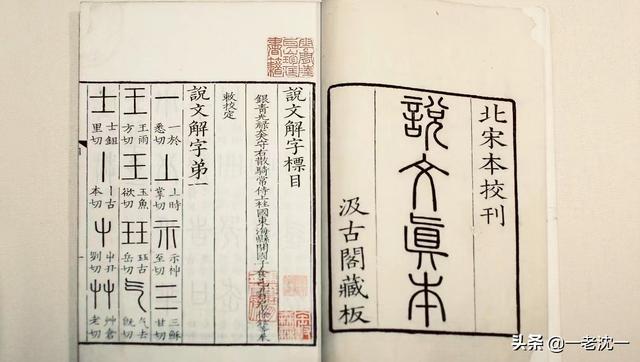 北宋本校刊
說文真本
汲古閣藏板
說文解字標目
銀青光祿大夫守右散騎常侍上柱國東海縣開國子食邑五百戶臣徐鉉等奉
敕校定
說文解字第一
一 一於悉切 上 上時掌切 示 示神至切 三 三穌甘切
王 王雨方切 玉 玉魚欲切 玨 玨古岳切 气 气去既切
士 士鉏里切 丨 丨古本切 屮 屮丑列切 艸 艸倉老切
头条 @一老沈一